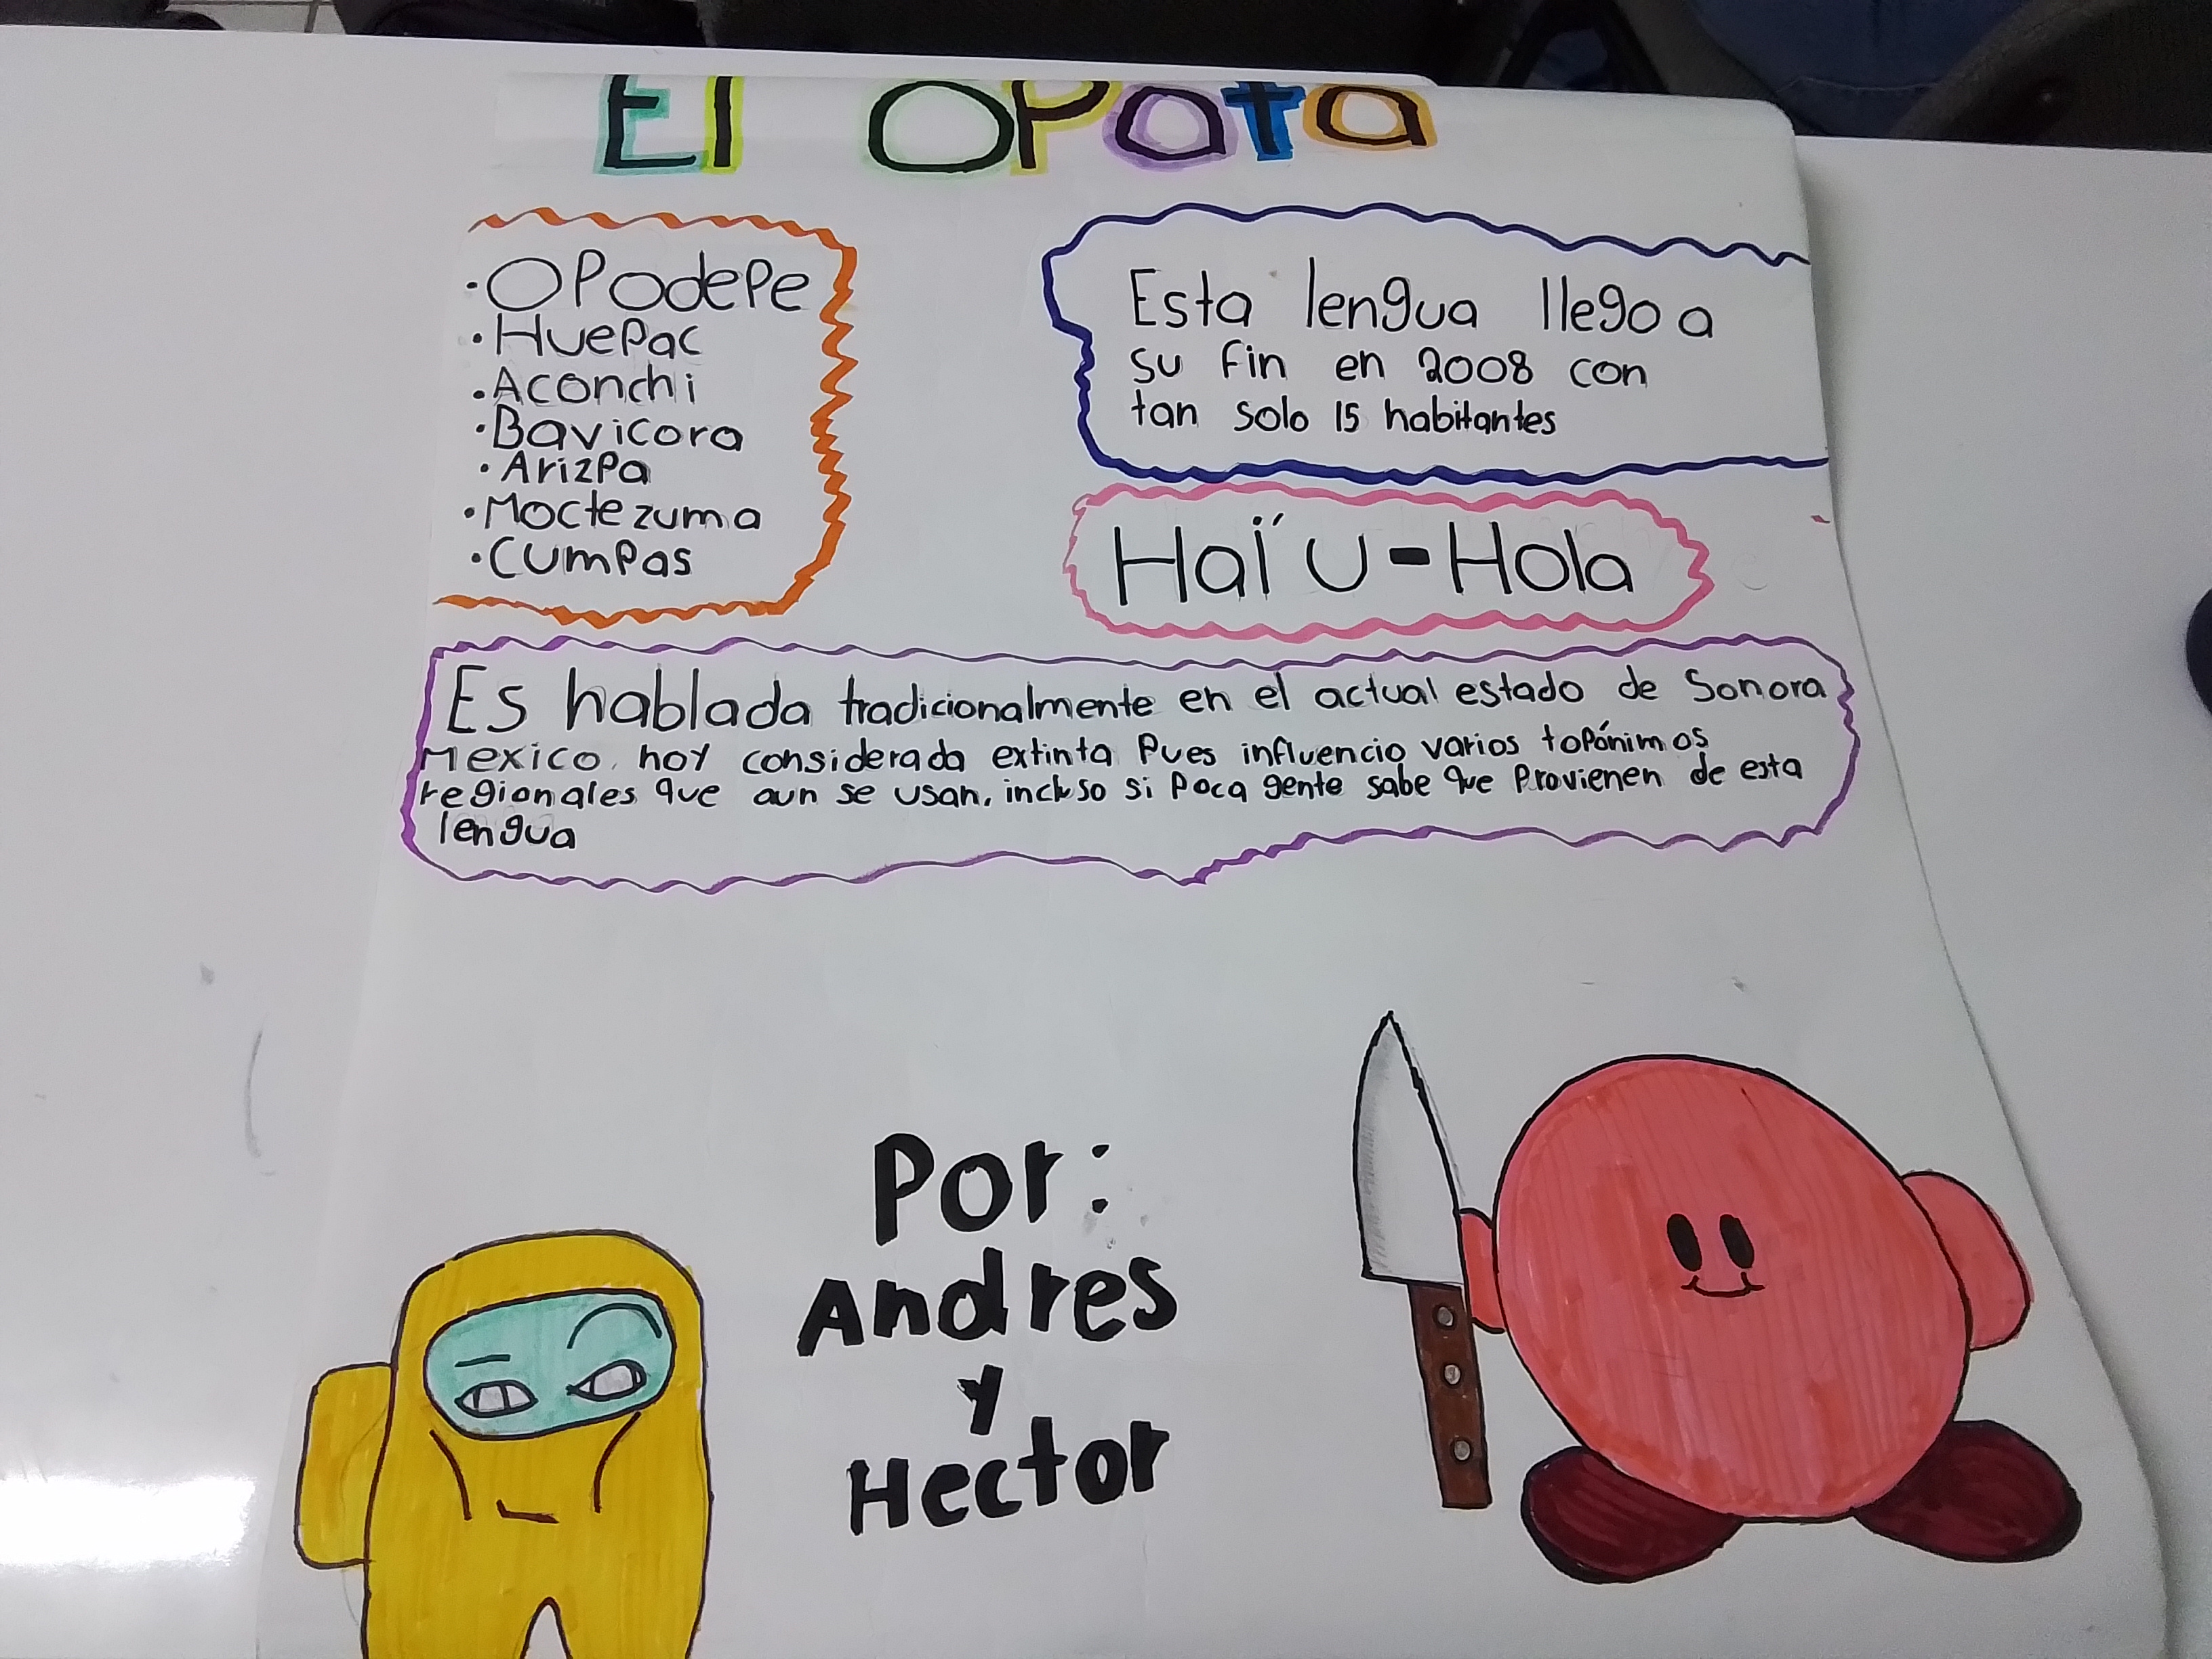 El Opata
• Opodepe
• Huepac
• Aconchi
• Bavicora
• Arizpa
• Moctezuma
• Cumpas
Esta lengua llego a
su fin en 2008 con
tan solo 15 habitantes
Haí u - Hola
Es hablada tradicionalmente en el actual estado de Sonora
Mexico, hoy considerada extinta Pues influencio varios topónimos
regionales que aun se usan, incluso si poca gente sabe que Provienen de esta
lengua
Por:
Andres
y
Hector